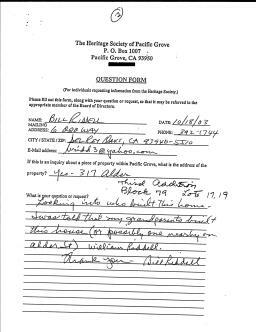 2
The Heritage Society of Pacific Grove
P. O. Box 1007
Pacific Grove, CA 93950
QUESTION FORM
(For individuals requesting information from the Heritage Society.)
Please fill out this form, along with your question or request, so that it may be referred to the
appropriate member of the Board of Directors.
NAME: BILL RIDDELL DATE: 10/18/03
MAILING
ADDRESS: 6 WAY PHONE: 1744
CITY / STATE / ZIP: DEL REY OAKS, CA 93940-5510
E-Mail address: @yahoo.com
If this is an inquiry about a piece of property within Pacific Grove, what is the address of the
property? Yes - 317 Alder
Third Addition
Block 79 Lots 17, 19
What is your question or request?
Looking into who built this home.
I was told that my grandparents built
this house (or possibly one nearby on
alder St) William Riddell.
Thank you - Bill Riddell